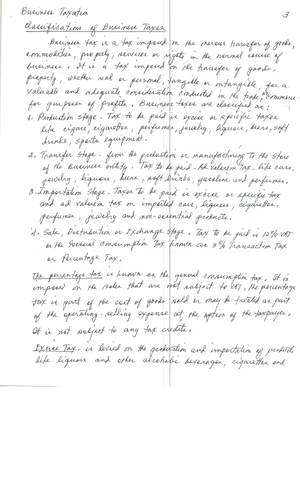 Business Taxation
3
Classification of Business Taxes
Business tax is a tax imposed on the onerous transfer of goods,
commodities, property, services or rights in the normal course of
business. It is a tax imposed on the transfer of goods,
property, whether real or personal, tangible or intangible, for a
valuable and adequate consideration conducted in the trade, commerce
for purposes of profits. Business taxes are classified as:
1. Production stage. Tax to be paid is excise or specific taxes
like cigars, cigarettes, perfumes, jewelry, liquors, beers, soft
drinks, sports equipment.
2. Transfer stage - from the production or manufacturing to the store
of the business entity. Tax to be paid - Ad Valorem Tax, like cars,
jewelry, liquors, beers, soft drinks, gasoline and perfumes.
3. Importation stage. Taxes to be paid is excise or specific tax
and ad valorem tax on imported cars, liquors, cigarettes,
perfumes, jewelry and non-essential products.
4. Sale, Distribution or Exchange Stage. Tax to be paid is 12% VAT
or the General Consumption Tax known as 3% Transaction Tax
or Percentage Tax.
The percentage tax is known as the general consumption tax. It is
imposed on the sales that are not subject to VAT. The percentage
tax is part of the cost of goods sold or may be treated as part
of the operating-selling expense at the option of the taxpayer.
It is not subject to any tax credits.
Excise Tax - is levied on the production and importation of products
like liquors and other alcoholic beverages, cigarettes and